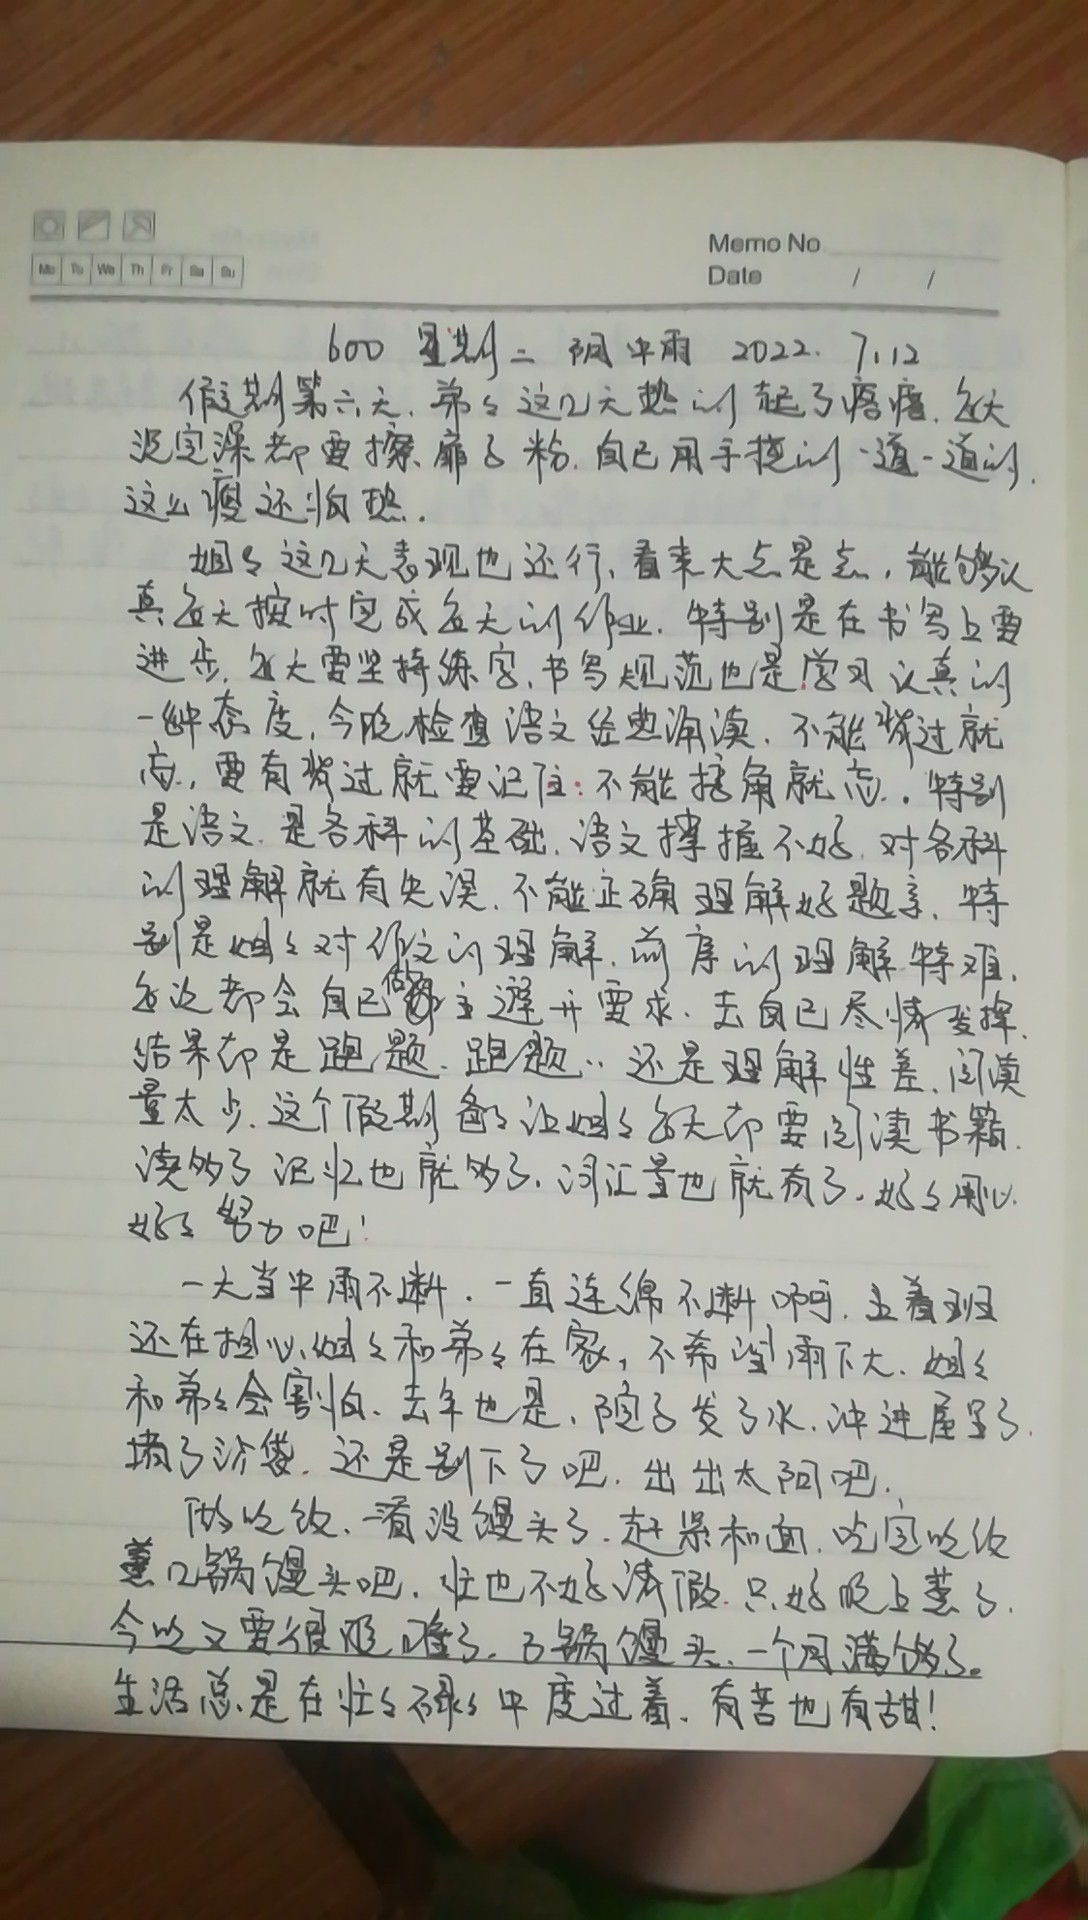 Memo No
Date / /
Mo Tu We Th Fr Sa Su
600 星期二 阴中雨 2022. 7.12
假期第六天、弟弟这几天热的起了疙瘩、每天
洗完澡都要擦痱子粉、自己用手挠的一道一道的、
这么瘦还怕热.
姐姐这几天表现也还行、看来大点是点,能够认
真每天按时完成每天的作业.特别是在书写上要
进步、每天要坚持练字、书写规范也是学习认真的
一种态度,今晚检查语文经典诵读、不能背过就
忘,要有背过就要记住:不能拐角就忘.特别
是语文.是各科的基础、语文掌握不好、对各科
的理解就有失误、不能正确理解好题意、特
别是姐姐对作文的理解、前序的理解特难、
每次都会自己做主避开要求、去自己尽情发挥、
结果却是跑题、跑题..还是理解性差、阅读
量太少、这个假期爸爸让姐姐每天都要阅读书籍、
读够了记忆也就够了、词汇量也就有了.好好用心
好好努力吧!
一天当中雨不断.一直连绵不断啊.上着班
还在担心姐姐和弟弟在家,不希望雨下大、姐姐
和弟弟会害怕、去年也是、院子发了水、冲进屋里了、
堵了沙袋、还是别下了吧.出出太阳吧.
做吃饭、一看没馒头了、赶紧和面、吃完吃饭
蒸几锅馒头吧、忙也不好请假.只好晚上蒸了.
锅馒头、一个月满够了。
生活总是在忙忙碌碌中度过着、有苦也有甜!